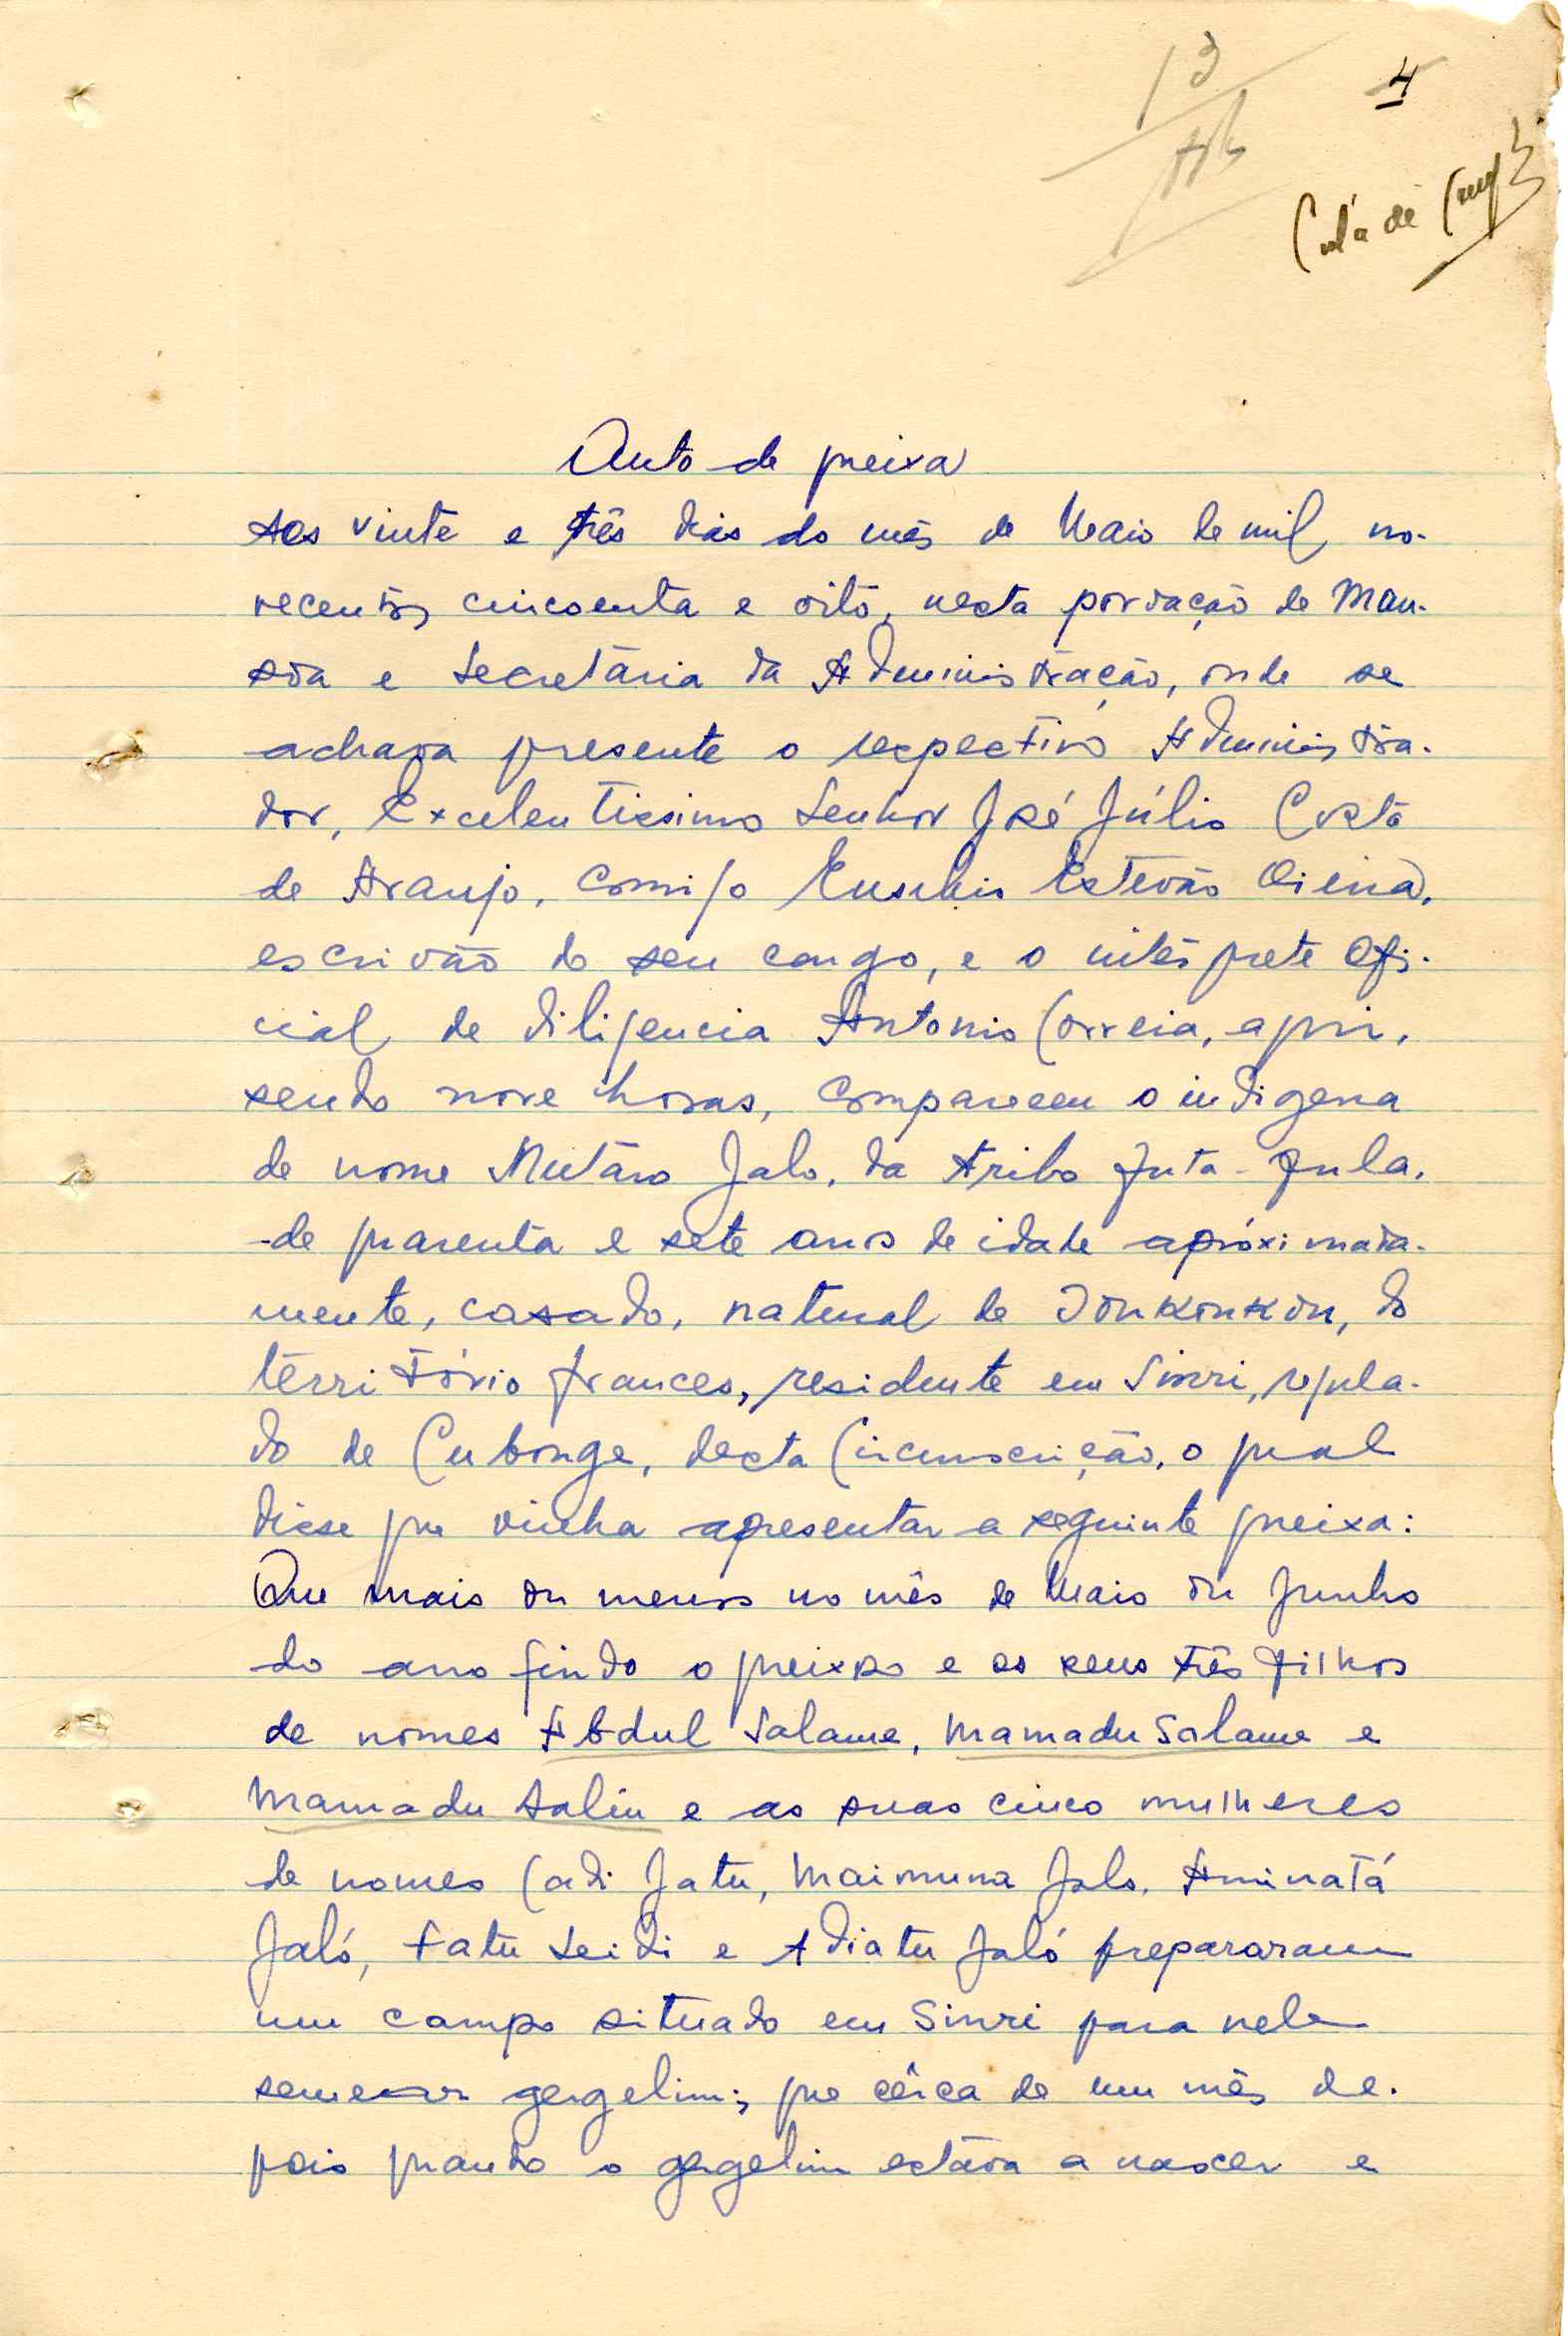 13
4
Costa de
Auto de queixa
Aos vinte e três dias do mês de Maio de mil no-
vecentos cincoenta e oito, nesta povoação de Man-
soa e Secretária da Administração, onde se
achava presente o respectivo Administra-
dor, Excelentissimo Senhor José Júlio Costa
de Araujo, comigo Eusébio Estevão Vieira,
escrivão do seu cargo, e o intérprete Ofi-
cial de diligencia Antonio Correia, aqui,
sendo nove horas, compareceu o indigena
de nome Mutaro Jalo, da tribo Futa-Fula,
de quarenta e sete anos de idade apróximada-
mente, casado, natural de Ionkonkon, do
território frances, residente em Sinri, regula-
do de Cubonge, desta Circunscrição, o qual
disse que vinha apresentar a seguinte queixa:
Que mais ou menos no mês de Maio ou Junho
do ano findo o queixoso e os seus três filhos
de nomes Abdul Salame, Mamadu Salame e
Mamadu Saliu e as suas cinco mulheres
de nomes Cadi Jatu, Maimuna Jalo, Aminatá
Jaló, Fatu Seidi e Adiatu Jaló prepararam
um campo situado em Sinri para nele
semear gergelim; que cêrca de um mês de-
pois quando o gergelim estava a nascer e